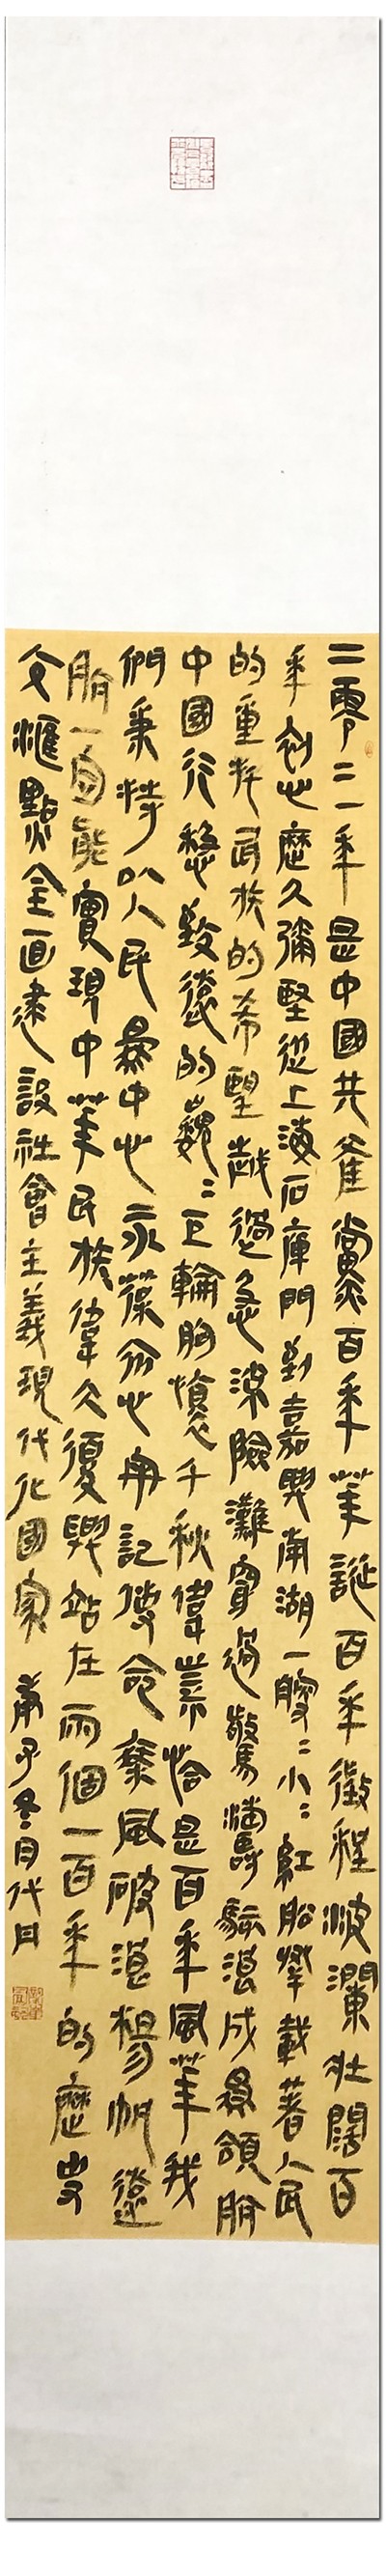 二零二一年是中國共產黨百年華誕百年徵程波瀾壯闊百
年初心歷久彌堅從上海石庫門到嘉興南湖一艘〻小〻紅船承載著人民
的重托民族的希望越過急流險灘穿過驚濤駭浪成為領航
中國行穩致遠的巍〻巨輪胸懷千秋偉業恰是百年風華我
們秉持以人民為中心永葆初心牢記使命乘風破浪揚帆遠
航一定能實現中華民族偉大復興站在兩個一百年的歷史
交匯點全面建設社會主義現代化國家 庚子冬月